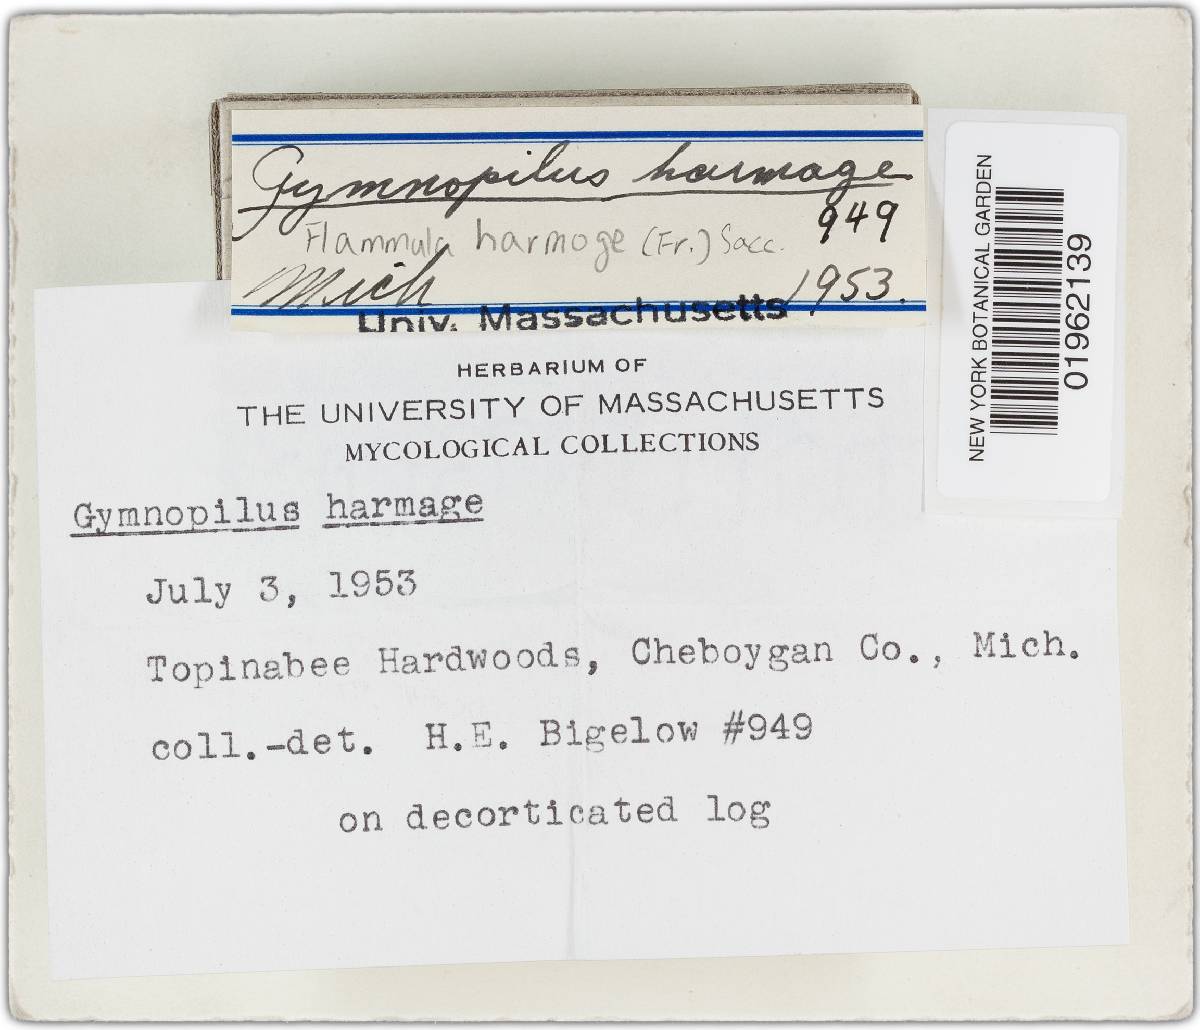 Gymnopilus harmage
949
Flammula harmoge (Fr.) Sacc.
Mich 1953.
Univ. Massachusetts
HERBARIUM OF
THE UNIVERSITY OF MASSACHUSETTS
MYCOLOGICAL COLLECTIONS
Gymnopilus harmage
July 3, 1953
Topinabee Hardwoods, Cheboygan Co., Mich.
coll.-det. H.E. Bigelow #949
on decorticated log
NEW YORK BOTANICAL GARDEN
01962139